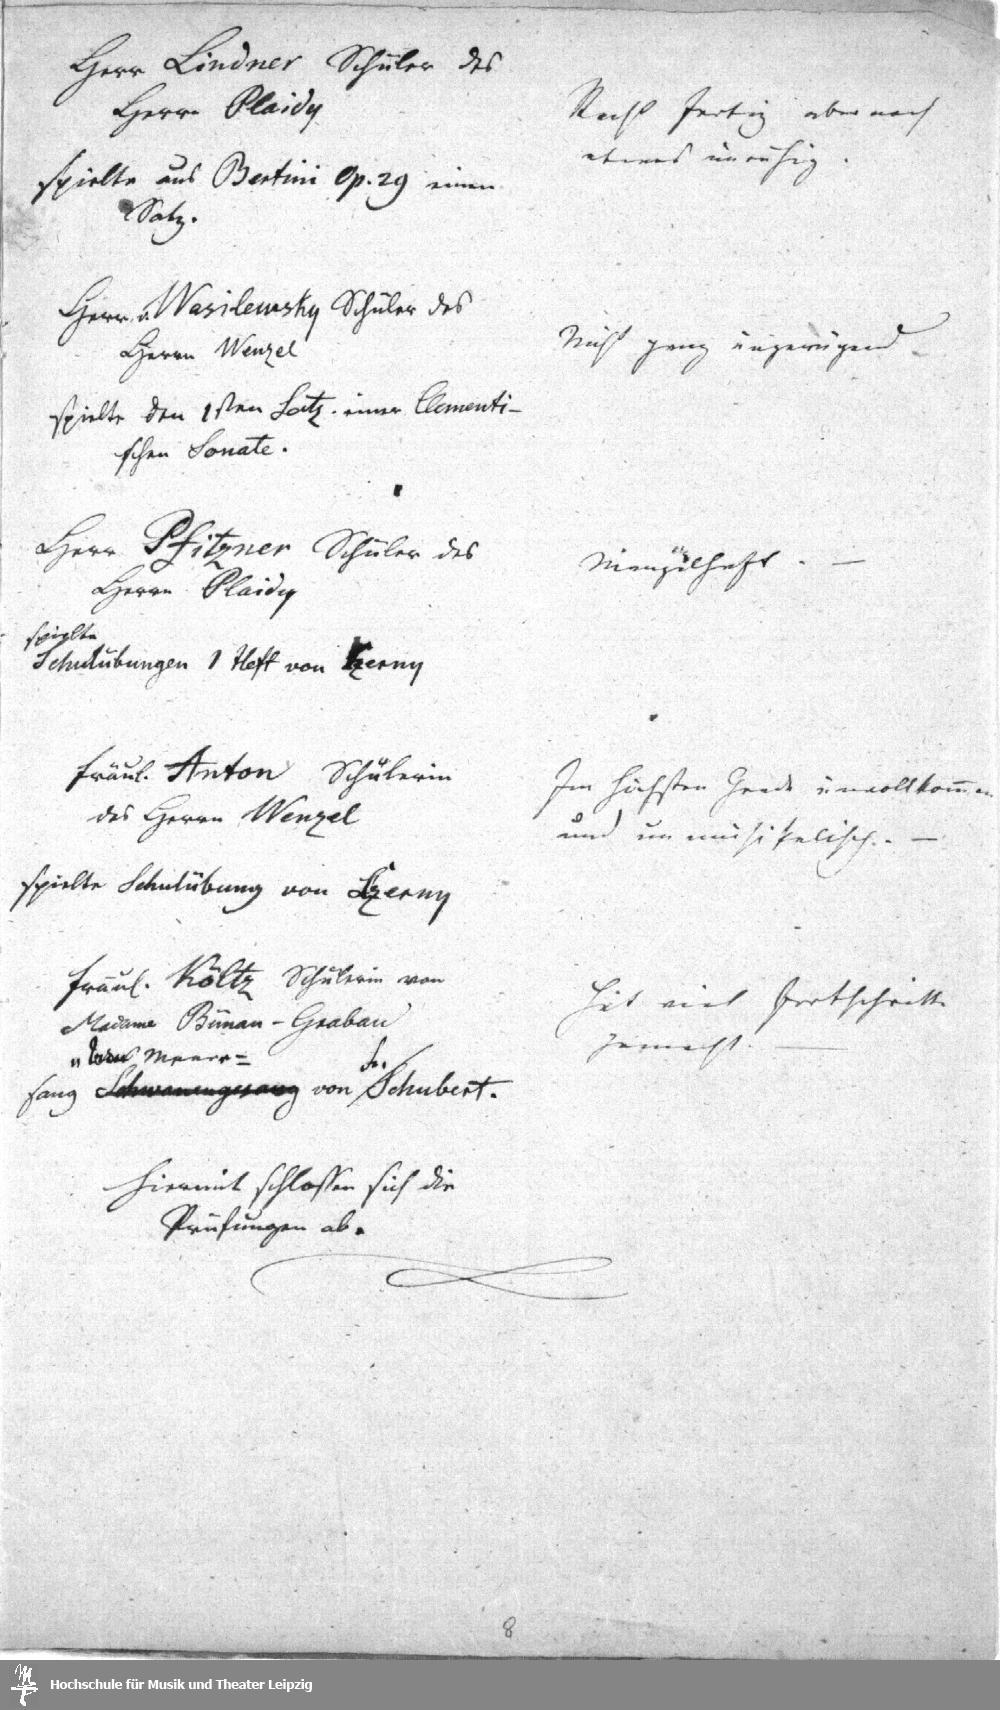 Herr Lindner Schüler des
Herrn Plaidy
Recht fertig aber noch
etwas unruhig.
spielte aus Bertini Op. 29 einen
Satz.
Herr v. Wasilewsky Schüler des
Herrn Wenzel
Nicht ganz ungenügend.
spielte den 1sten Satz einer Clementi-
schen Sonate.
Herr Pfitzner Schüler des
Herrn Plaidy
Mangelhaft. —
spielte
Schulübungen 1 Heft von Czerny
Fräul. Anton Schülerin
des Herrn Wenzel
Im höchsten Grade unvollkommen
und unmusikalisch. —
spielte Schulübung von Czerny
Fräul. Költz Schülerin von
Madame Bünau-Grabau
Hat viel Fortschritte
gemacht. —
Meere=
sang Schwanengesang von Fr. Schubert.
Hiermit schlossen sich die
Prüfungen ab.
8
Hochschule für Musik und Theater Leipzig